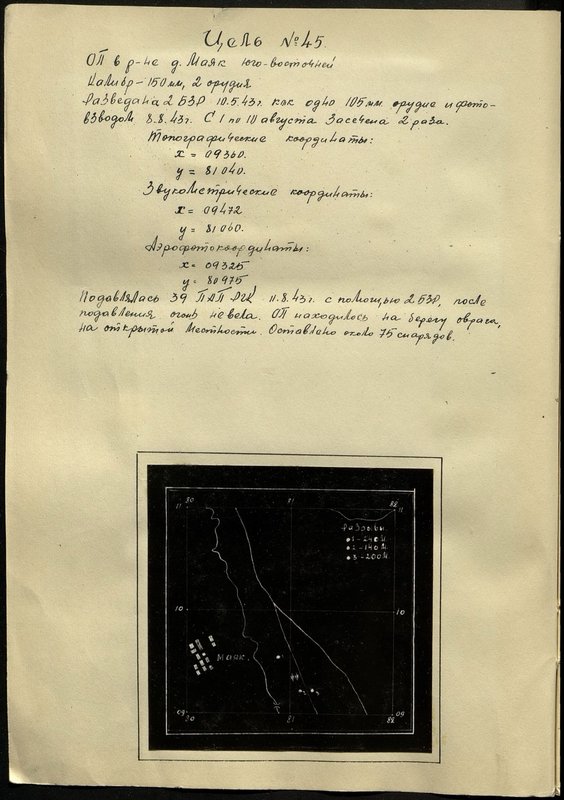 Цель №45.
ОП в р-не д. Маяк юго-восточней
Калибр – 150 мм, 2 орудия
Разведана 2 БЗР 10.5.43 г. как одно 105 мм орудие и фото-
взводом 8.8.43 г. С 1 по 10 августа засечена 2 раза.
Топографические координаты:
x = 09360.
y = 81040.
Звукометрические координаты:
x = 09472
y = 81060.
Аэрофотокоординаты:
x = 09325
y = 80975
Подавлялась 39 ПАП РГК 11.8.43 г. с помощью 2 БЗР, после
подавления огонь не вела. ОП находилось на берегу оврага,
на открытой местности. Оставлено около 75 снарядов.
80 81 82
11 11
Разрывы
1 – 240 м.
2 – 140 м.
3 – 200 м.
10 10
МАЯК.
09 09
80 81 82